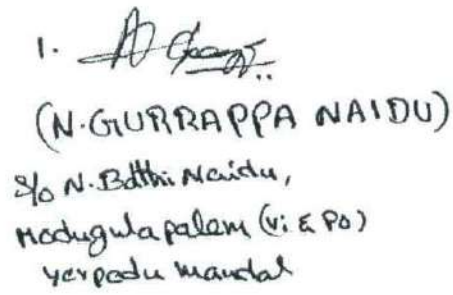 1.
(N.GURRAPPA NAIDU)
S/o N.Batthi Naidu,
Modugulapalem (Vi & Po)
Yerpedu mandal